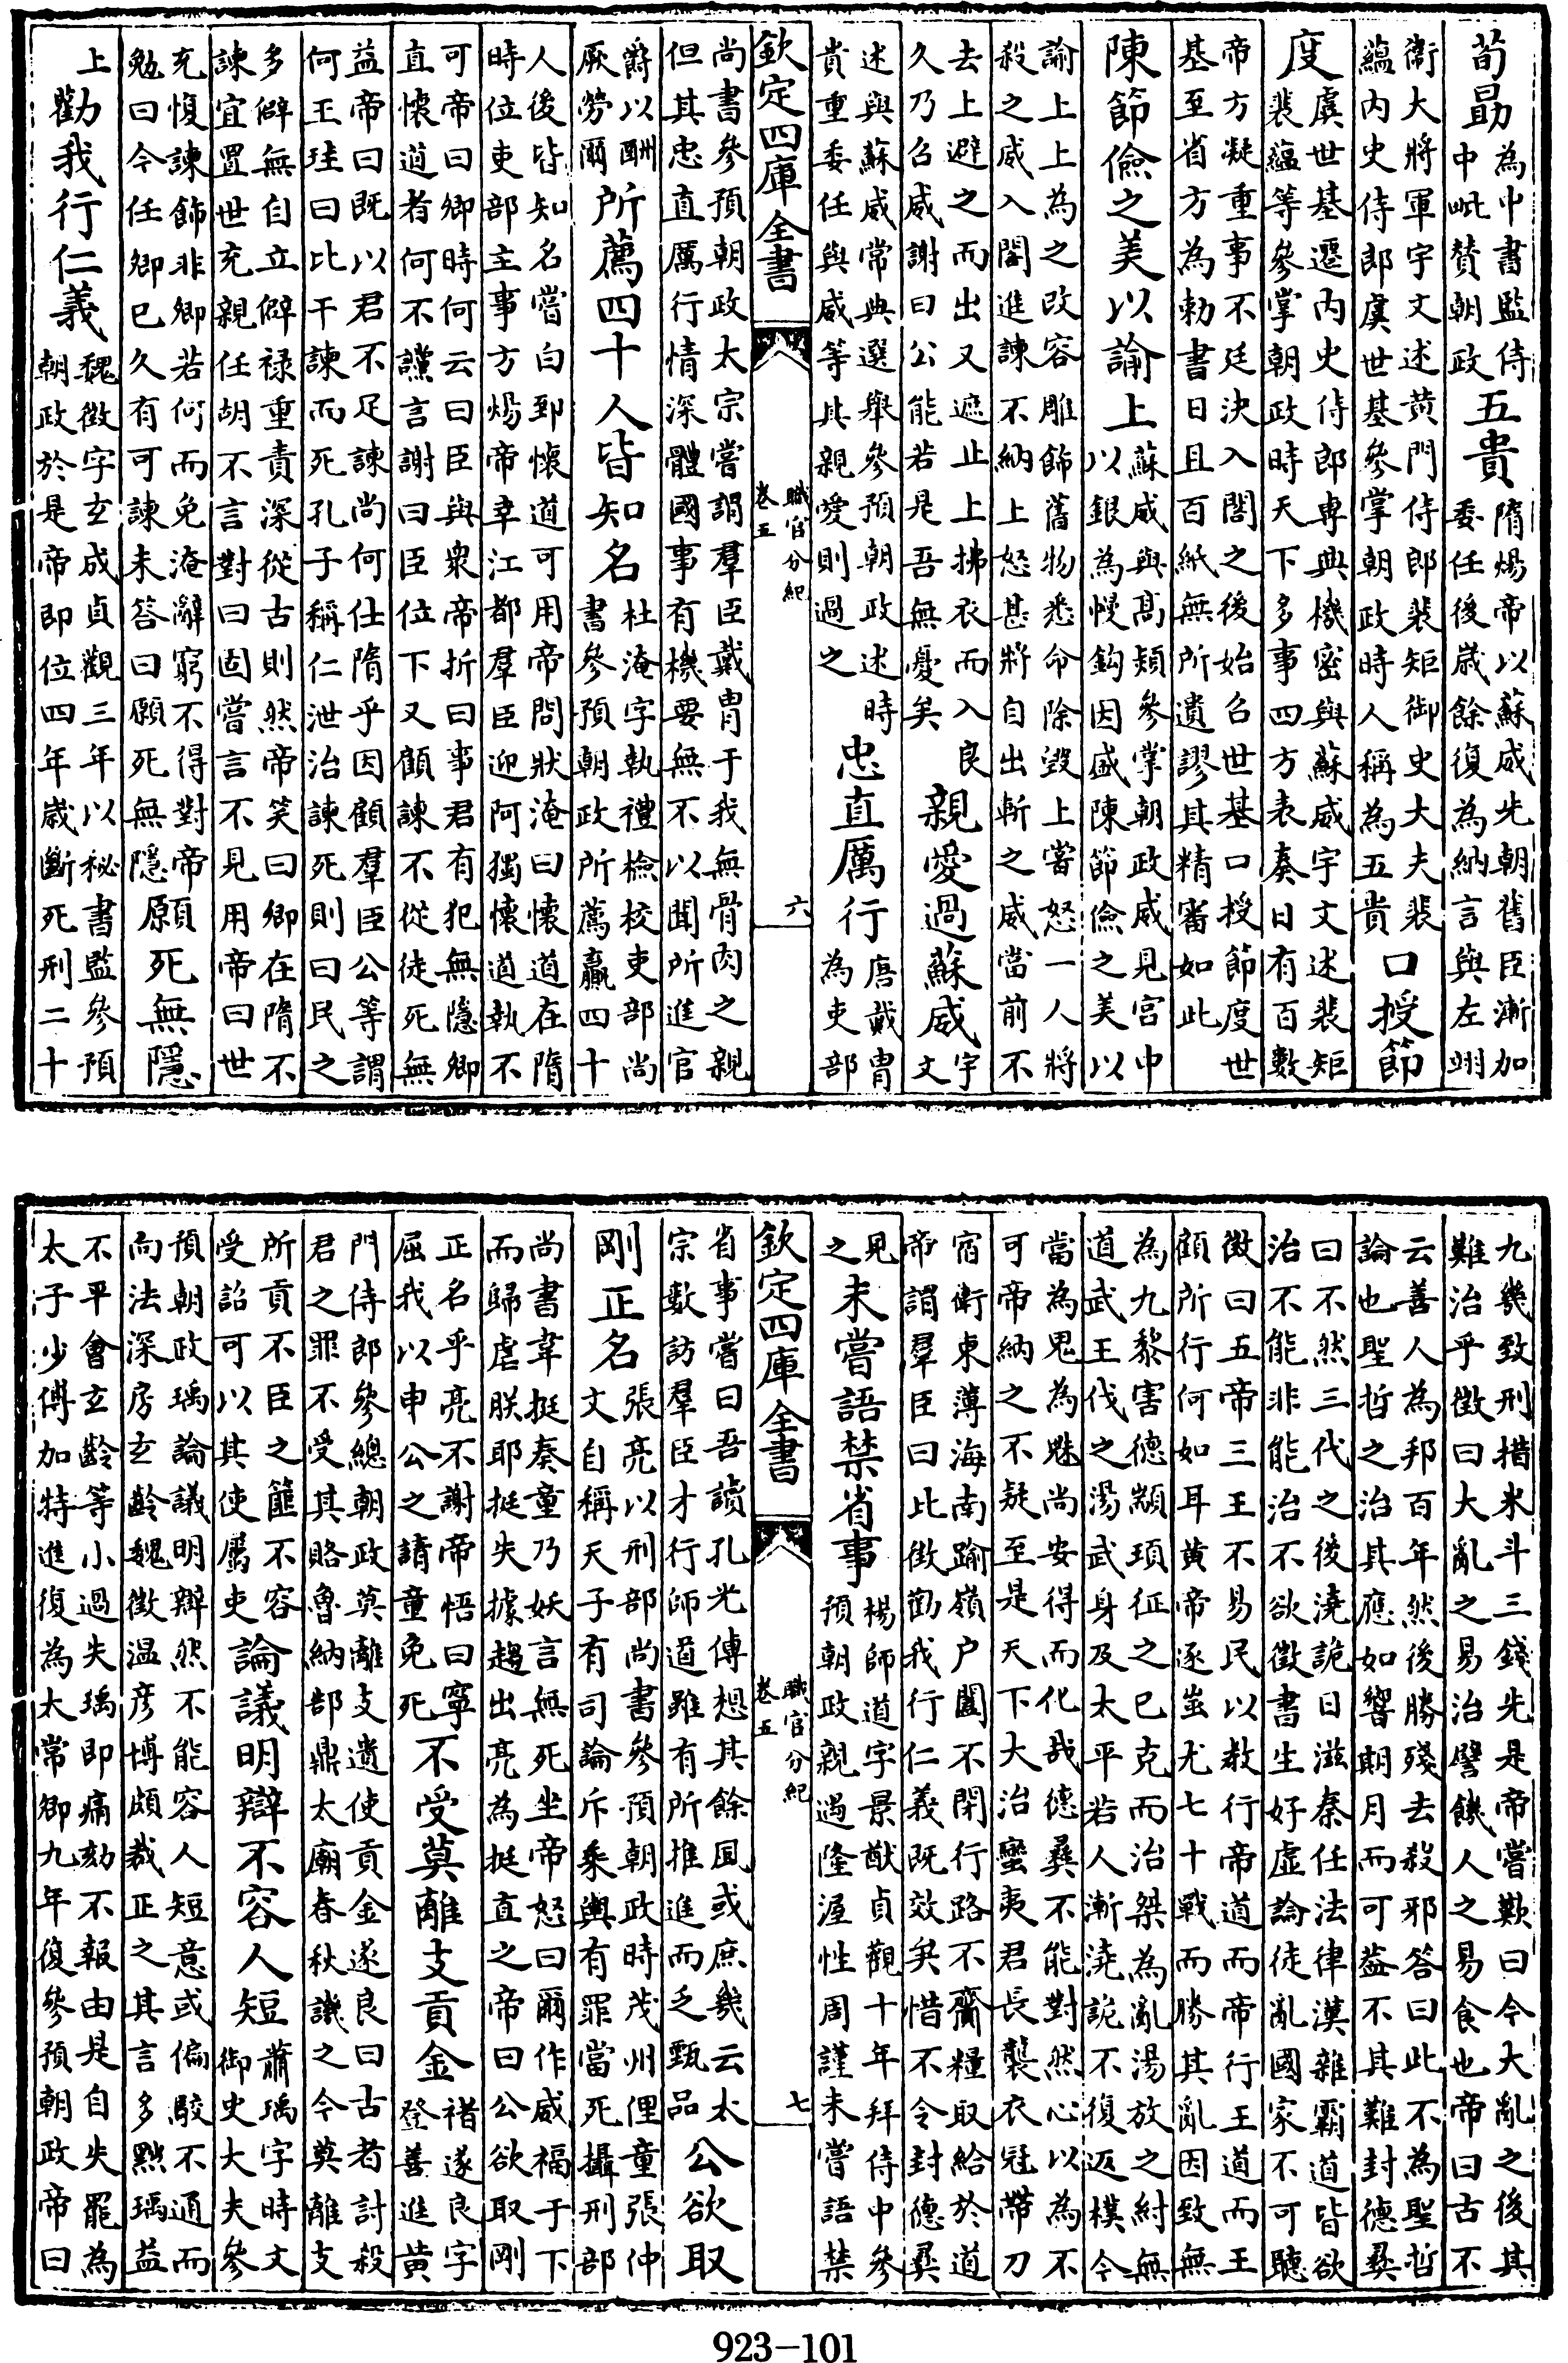 荀勗為中書監侍中毗賛朝政五貴隋煬帝以蘇威先朝舊臣漸加委任後歳餘復為納言與左翊
衛大將軍宇文述黄門侍郎裴矩御史大夫裴蘊内史侍郎虞世基參掌朝政時人稱為五貴口授節
度虞世基遷内史侍郎専典機密與蘇威宇文述裴矩裴蘊等參掌朝政時天下多事四方表奏日有百數
帝方凝重事不廷決入閤之後始召世基口授節度世基至省方為勅書日且百紙無所遺謬其精審如此
陳節儉之美以諭上蘇威與髙熲參掌朝政威見宮中以銀為幔鈎因盛陳節儉之美以
諭上上為之改容雕飾舊物悉命除毀上嘗怒一人將殺之威入閤進諫不納上怒甚將自出斬之威當前不
去上避之而出又遮止上拂衣而入良久乃召威謝曰公能若是吾無憂矣親愛過蘇威宇文
述與蘇威常典選舉參預朝政述時貴重委任與威等其親愛則過之忠直厲行唐戴胄為吏部
欽定四庫全書 職官分紀卷五 六
尚書參預朝政太宗嘗謂羣臣戴胄于我無骨肉之親但其忠直厲行情深體國事有機要無不以聞所進官
爵以酬厥勞爾所薦四十人皆知名杜淹字執禮檢校吏部尚書參預朝政所薦贏四十
人後皆知名嘗白郅懐道可用帝問狀淹曰懐道在隋時位吏部主事方煬帝幸江都羣臣迎阿獨懐道執不
可帝曰卿時何云曰臣與衆帝折曰事君有犯無隱卿直懐道者何不讜言謝曰臣位下又顧諫不從徒死無
益帝曰既以君不足諫尚何仕隋乎因顧羣臣公等謂何王珪曰比干諫而死孔子稱仁泄治諫死則曰民之
多僻無自立僻禄重責深從古則然帝笑曰卿在隋不諫宜置世充親任胡不言對曰固嘗言不見用帝曰世
充愎諫飾非卿若何而免淹辭窮不得對帝勉曰今任卿已久有可諫未答曰願死無隱願死無隱
上勸我行仁義魏徵字玄成貞觀三年以秘書監參預朝政於是帝即位四年歳斷死刑二十
九幾致刑措米斗三錢先是帝嘗歎曰今大亂之後其難治乎徵曰大亂之易治譬饑人之易食也帝曰古不
云善人為邦百年然後勝殘去殺邪答曰此不為聖哲論也聖哲之治其應如響朞月而可葢不其難封德彛
曰不然三代之後澆詭日滋秦任法律漢雜霸道皆欲治不能非能治不欲徵書生好虚論徒亂國家不可聽
徴曰五帝三王不易民以教行帝道而帝行王道而王顧所行何如耳黄帝逐蚩尤七十戰而勝其亂因致無
為九黎害德顓頊征之已克而治桀為亂湯放之紂無道武王伐之湯武身及太平若人漸澆詭不復返樸今
當為鬼為魅尚安得而化哉德彝不能對然心以為不可帝納之不疑至是天下大治蠻夷君長襲衣冠帶刀
宿衛東薄海南踰嶺户闔不閉行路不齎糧取給於道帝謂羣臣曰此徴勸我行仁義既效矣惜不令封德彛
見之未嘗語禁省事楊師道字景猷貞觀十年拜侍中參預朝政親遇隆渥性周謹未嘗語禁
欽定四庫全書 職官分紀卷五 七
省事嘗曰吾讀孔光傳想其餘風或庶幾云太宗數訪羣臣才行師道雖有所推進而乏甄品公欲取
剛正名張亮以刑部尚書參預朝政時茂州俚童張仲文自稱天子有司論斥乘輿有罪當死攝刑部
尚書韋挺奏童乃妖言無死坐帝怒曰爾作威福于下而歸虐朕耶挺失據趨出亮為挺直之帝曰公欲取剛
正名乎亮不謝帝悟曰寧屈我以申公之請童免死不受莫離支貢金褚遂良字登善進黄
門侍郎參總朝政莫離支遺使貢金遂良曰古者討殺君之罪不受其賂魯納郜鼎太廟春秋譏之今莫離支
所貢不臣之篚不容受詔可以其使屬吏論議明辯不容人短蕭瑀字時文御史大夫參
預朝政瑀論議明辯然不能容人短意或偏駮不通而向法深房玄齡魏徴温彦博頗裁正之其言多黙瑀益
不平會玄齡等小過失瑀即痛劾不報由是自失罷為太子少傅加特進復為太常卿九年復參預朝政帝曰
923-101